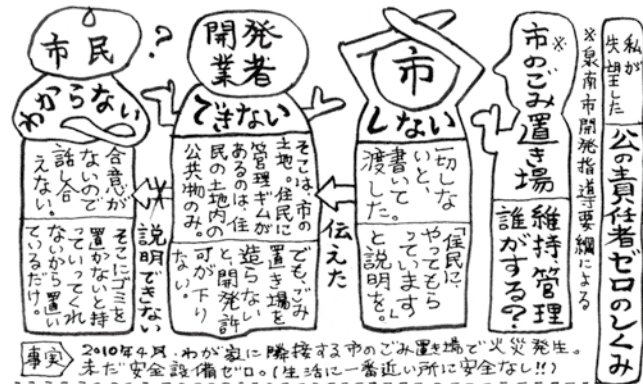 私が
失望した
公の責任者ゼロのしくみ
※泉南市開発指導要綱による
※
市のごみ置き場
維持管理
誰がする？
市
しない
一切しな
いと、
書いて
渡した。
「住民に、
やってもら
っています」
と説明を。
伝えた
開発
業者
できない
そこは、市の
土地。住民に
管理ギムが
あるのは、住
民の土地内の
公共物のみ。
でも、ごみ
置き場を
造らない
と、開発許
可が下り
ない。
説明できない
市民
？
わからない
合意が
ないので
話し合
えない。
そこにゴミを
置かないと持
っていってくれ
ないから置い
ているだけ。
事実
2010年4月、わが家に隣接する市のごみ置き場で火災発生。
未だ安全設備ゼロ。(生活に一番近い所に安全なし!!)